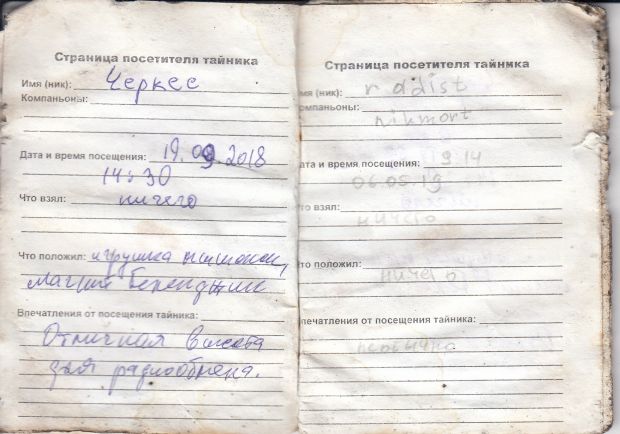 Страница посетителя тайника
Имя (ник): Черкес
Компаньоны:
Дата и время посещения: 19.09.2018
14:30
Что взял:
ничего
Что положил: игрушка
магнит
Впечатления от посещения тайника:
Отличная высота
для радиообмена.
Страница посетителя тайника
мя (ник): r addist
мпаньоны:
nikmort
ата и время посещения: 9 14
06.05.19
то взял:
ничего
то положил:
ничего
печатления от посещения тайника:
необычно